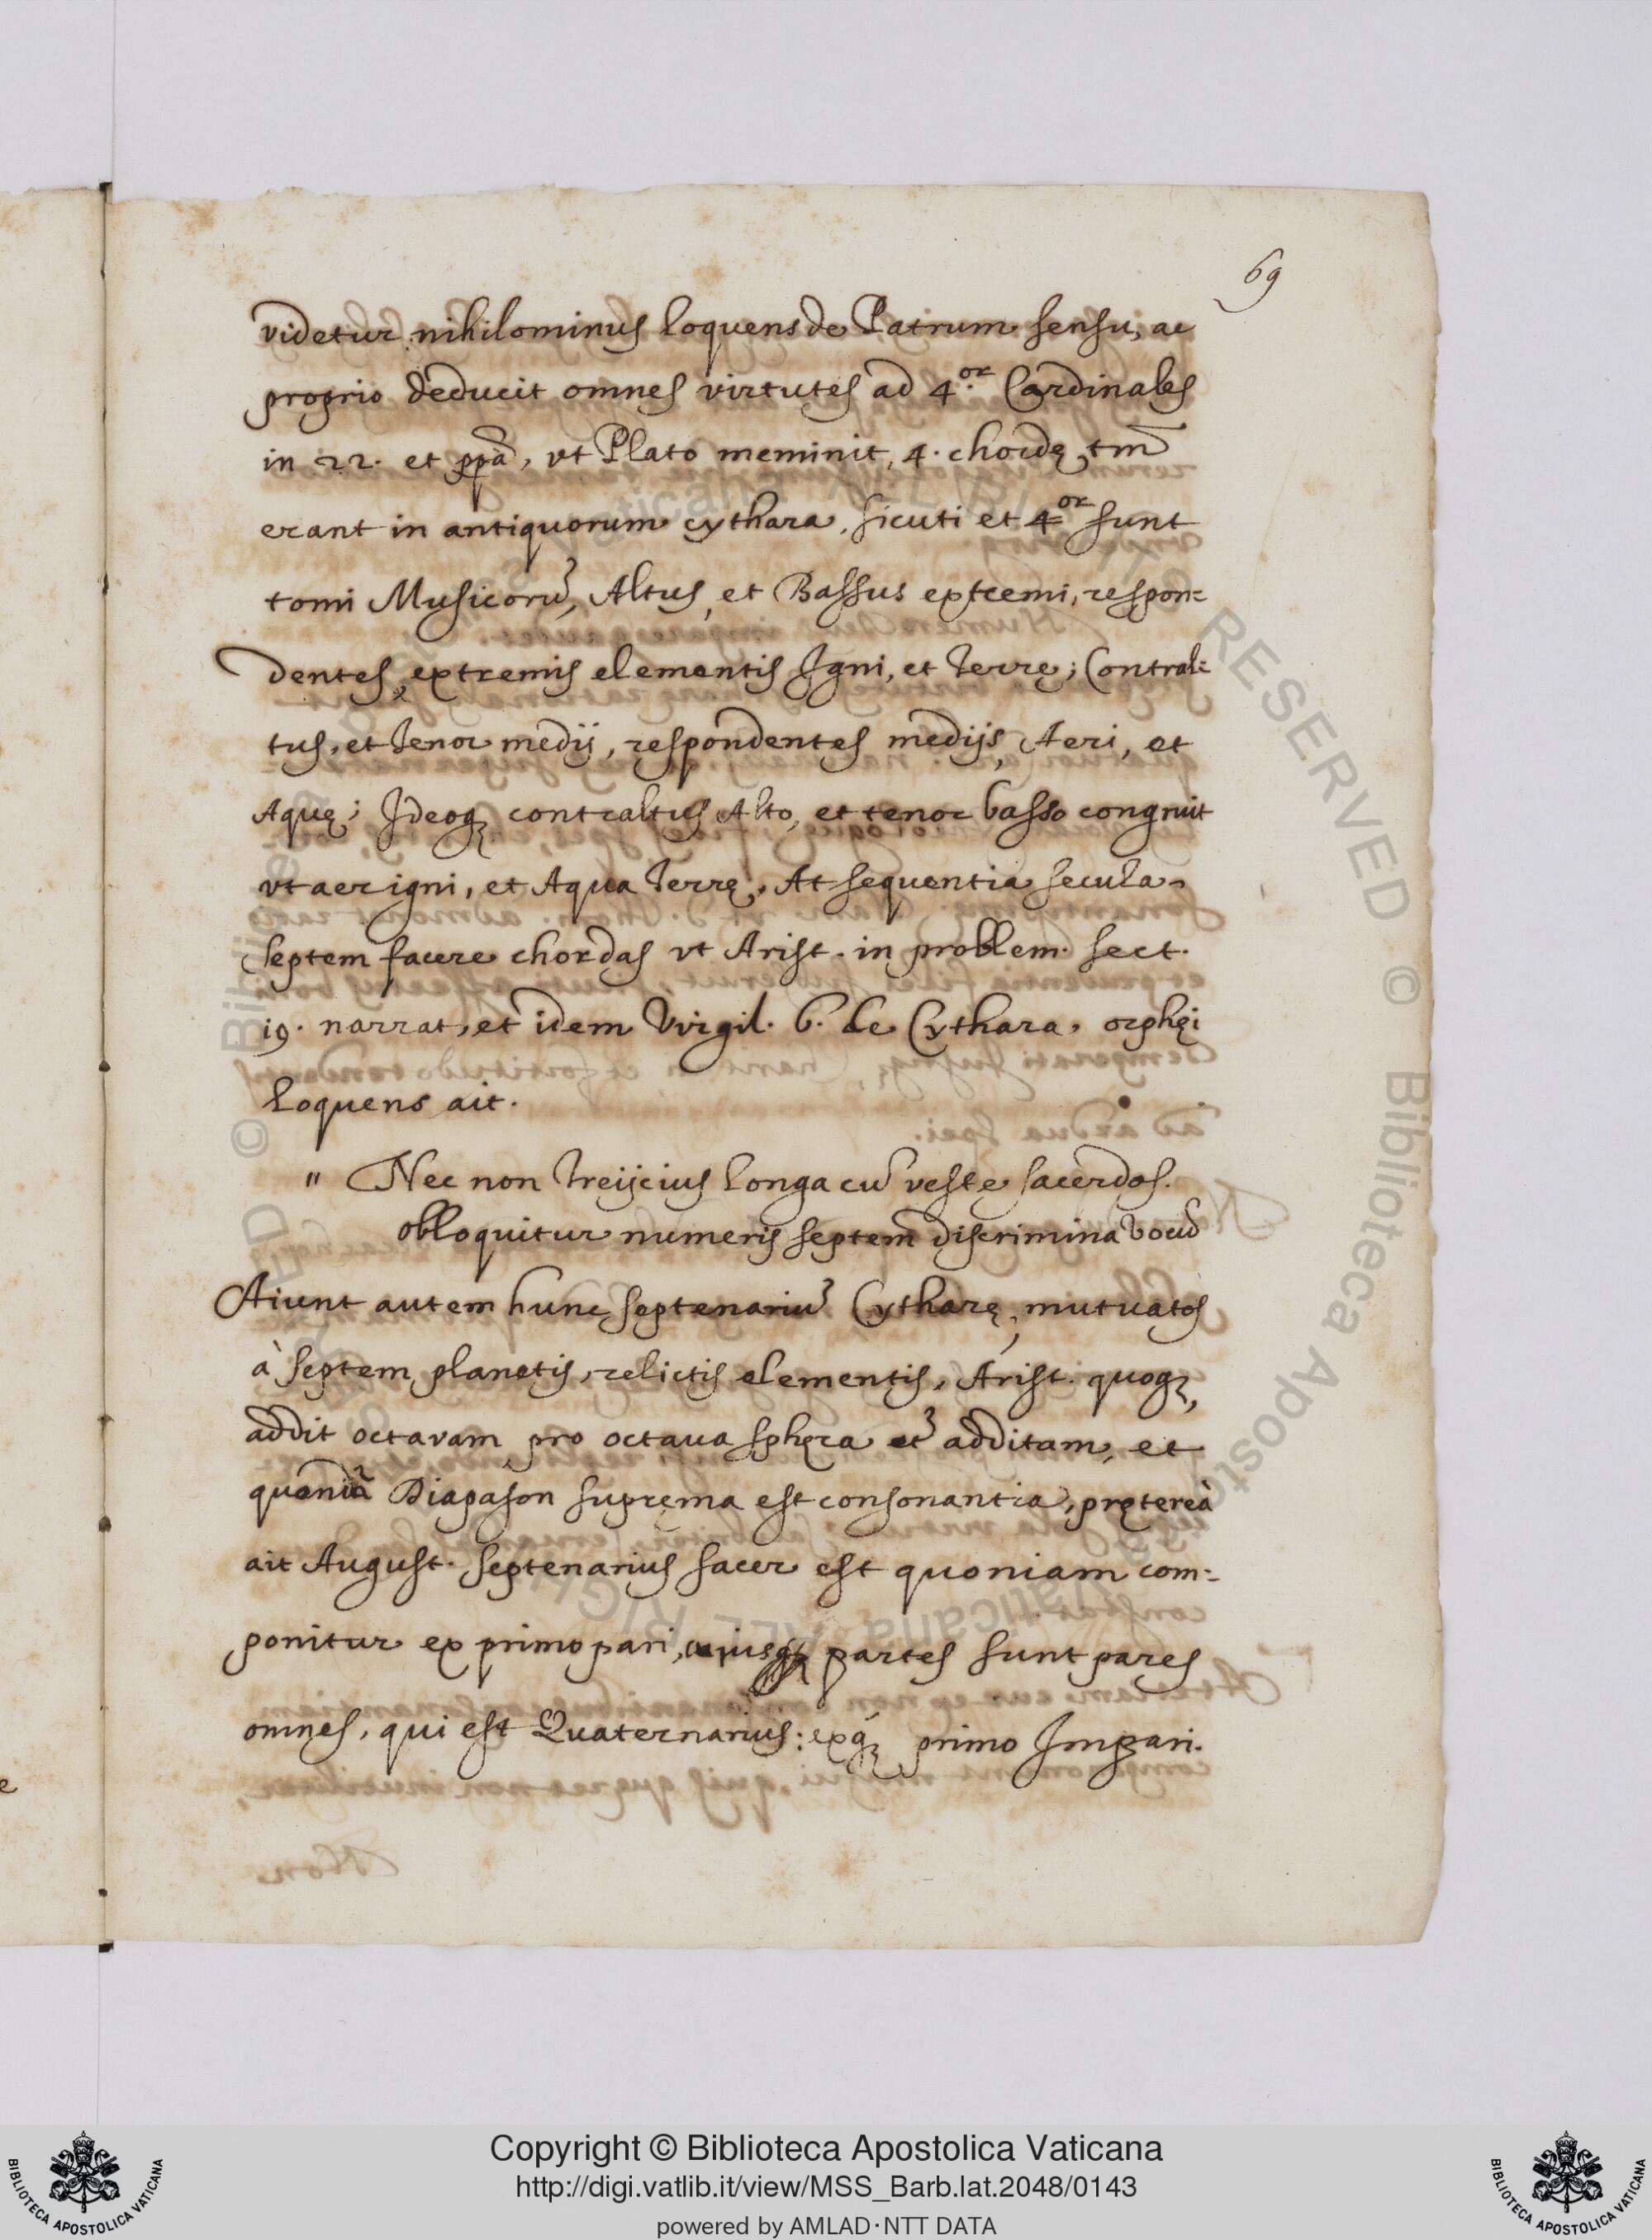 69
videtur nihilominus loquens de Patrum sensu, ac
proprio deducit omnes virtutes ad 4.or Cardinales
in 22. et ppã, vt Plato meminit, 4. chordę tm̃
erant in antiquorum cythara, sicuti et 4or sunt
tomi Musicorũ, Altus, et Bassus extremi, respon=
dentes extremis elementis Igni, et Terrę; Contral=
tus, et Tenor medij, respondentes medijs, Aeri, et
Aquę; Ideoq3 contraltus Alto, et tenor basso congruit
vt aer igni, et Aqua Terrę. At sequentia secula
septem facere chordas vt Arist. in problem. sect.
19. narrat, et idem Virgil. 6. de Cythara, orphęi
loquens ait.
" Nec non Treijcius longa cũ veste sacerdos.
obloquitur numeris septem discrimina vocũ
Aiunt autem hunc septenariũ Cytharę, mutuatos
à septem planetis, relictis elementis, Arist. quoq3,
addit octavam pro octaua sphęra et additam, et
quoniã Diapason suprema est consonantia, prętereà
ait August. septenarius sacer est quoniam com=
ponitur ex primo pari, cujus partes sunt pares
omnes, qui est Quaternarius: exq3 primo Impari.
Copyright © Biblioteca Apostolica Vaticana
http://digi.vatlib.it/view/MSS_Barb.lat.2048/0143
powered by AMLAD·NTT DATA
BIBLIOTECA APOSTOLICA VATICANA
BIBLIOTECA APOSTOLICA VATICANA